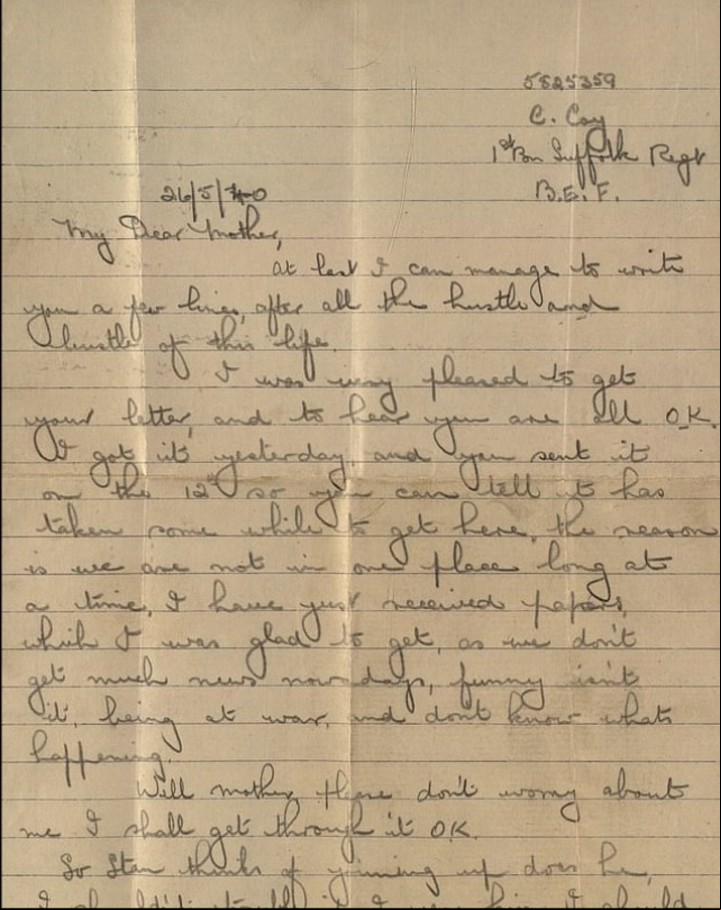 5825359
C. Coy
1st Bn Suffolk Regt
B.E.F.
26/5/40
My Dear Mother,
At last I can manage to write
you a few lines, after all the hustle and
bustle of this life.
I was very pleased to get
your letter, and to hear you are all O.K.
I got it yesterday, and you sent it
on the 12th so you can tell it has
taken some while to get here, the reason
is we are not in one place long at
a time, I have just received papers,
which I was glad to get, as we don't
get much news now days, funny isn't
it, being at war, and dont know whats
happening.
Will mother please don't worry about
me I shall get through it O.K.
So Stan thinks of joining up does he,
I if I I should